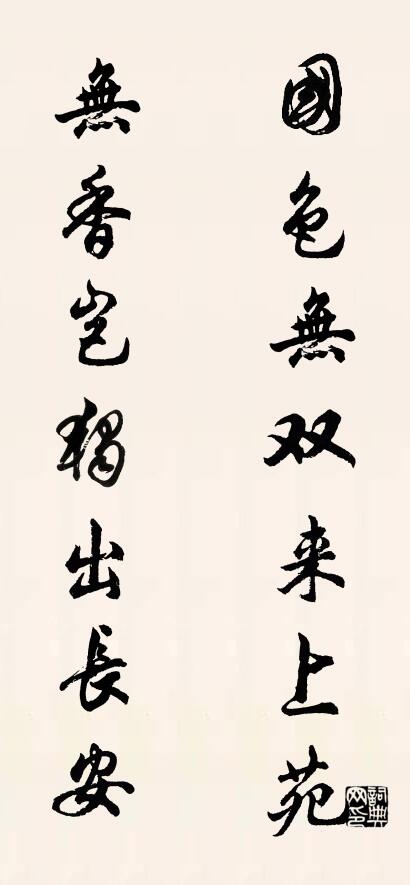 國色無双来上苑
無香岂獨出長安
詞典
网印